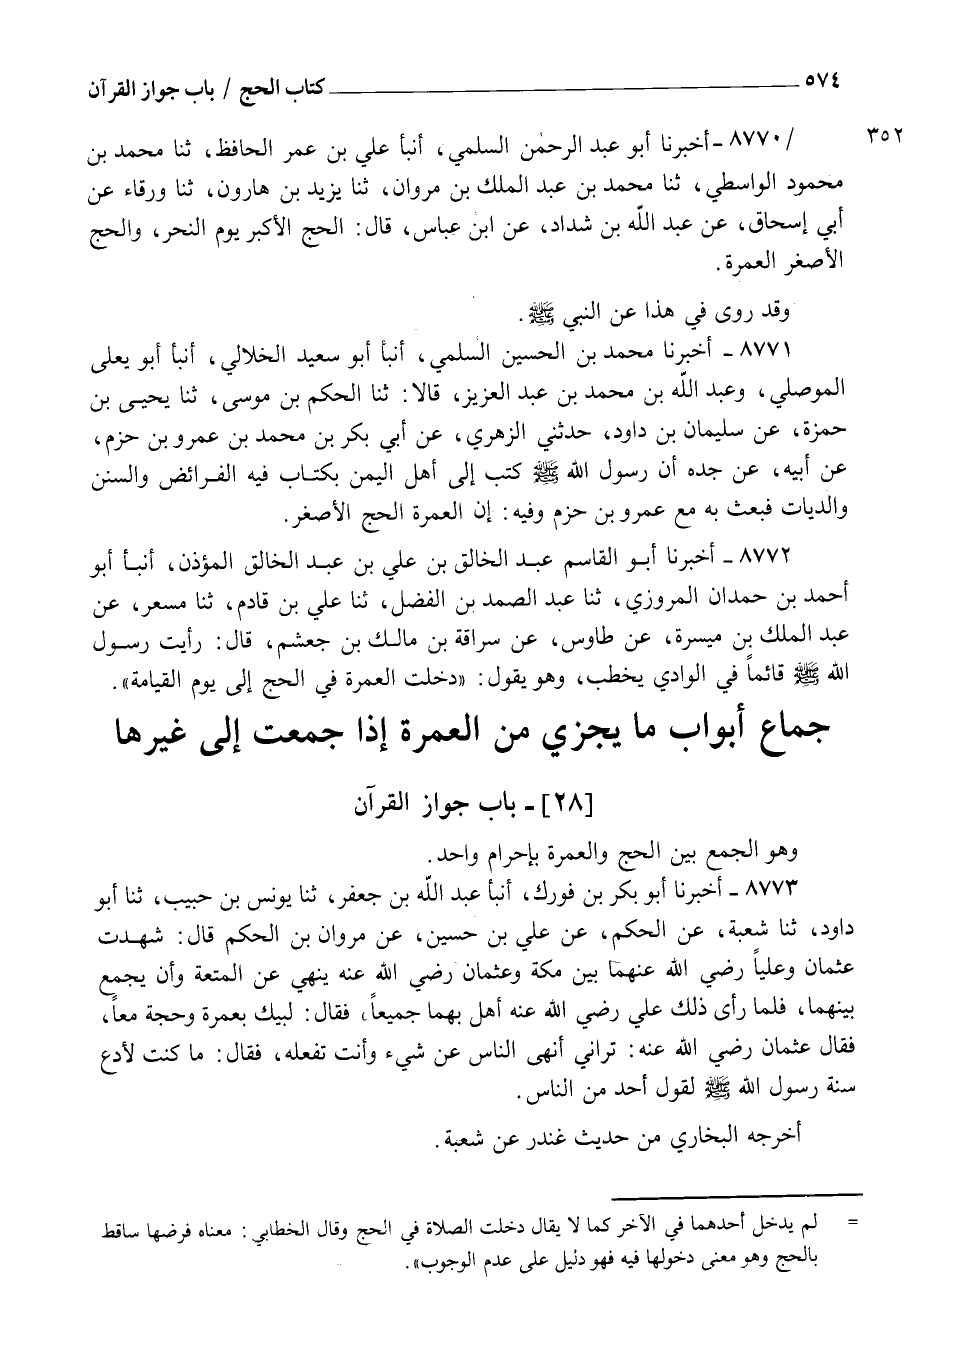 ٥٧٤ ــــــــ كتاب الحج / باب جواز القرآن
٣٥٢ / ٨٧٧٠ - أخبرنا أبو عبد الرحمٰن السلمي، أنبأ علي بن عمر الحافظ، ثنا محمد بن
محمود الواسطي، ثنا محمد بن عبد الملك بن مروان، ثنا يزيد بن هارون، ثنا ورقاء عن
أبي إسحاق، عن عبد اللّه بن شداد، عن ابن عباس، قال: الحج الأكبر يوم النحر، والحج
الأصغر العمرة.
وقد روى في هذا عن النبي ﷺ.
٨٧٧١ - أخبرنا محمد بن الحسين السلمي، أنبأ أبو سعيد الخلالي، أنبأ أبو يعلى
الموصلي، وعبد اللّه بن محمد بن عبد العزيز، قالا: ثنا الحكم بن موسى، ثنا يحيى بن
حمزة، عن سليمان بن داود، حدثني الزهري، عن أبي بكر بن محمد بن عمرو بن حزم،
عن أبيه، عن جده أن رسول الله ﷺ كتب إلى أهل اليمن بكتاب فيه الفرائض والسنن
والديات فبعث به مع عمرو بن حزم وفيه: إن العمرة الحج الأصغر.
٨٧٧٢ - أخبرنا أبو القاسم عبد الخالق بن علي بن عبد الخالق المؤذن، أنبأ أبو
أحمد بن حمدان المروزي، ثنا عبد الصمد بن الفضل، ثنا علي بن قادم، ثنا مسعر، عن
عبد الملك بن ميسرة، عن طاوس، عن سراقة بن مالك بن جعشم، قال: رأيت رسول
الله ﷺ قائماً في الوادي يخطب، وهو يقول: «دخلت العمرة في الحج إلى يوم القيامة».
جماع أبواب ما يجزي من العمرة إذا جمعت إلى غيرها
[٢٨] - باب جواز القرآن
وهو الجمع بين الحج والعمرة بإحرام واحد.
٨٧٧٣ - أخبرنا أبو بكر بن فورك، أنبأ عبد اللّه بن جعفر، ثنا يونس بن حبيب، ثنا أبو
داود، ثنا شعبة، عن الحكم، عن علي بن حسين، عن مروان بن الحكم قال: شهدت
عثمان وعلياً رضي الله عنهما بين مكة وعثمان رضي الله عنه ينهي عن المتعة وأن يجمع
بينهما، فلما رأى ذلك علي رضي الله عنه أهل بهما جميعاً، فقال: لبيك بعمرة وحجة معاً،
فقال عثمان رضي الله عنه: تراني أنهى الناس عن شيء وأنت تفعله، فقال: ما كنت لأدع
سنة رسول الله ﷺ لقول أحد من الناس.
أخرجه البخاري من حديث غندر عن شعبة.
= لم يدخل أحدهما في الآخر كما لا يقال دخلت الصلاة في الحج وقال الخطابي: معناه فرضها ساقط
بالحج وهو معنى دخولها فيه فهو دليل على عدم الوجوب».